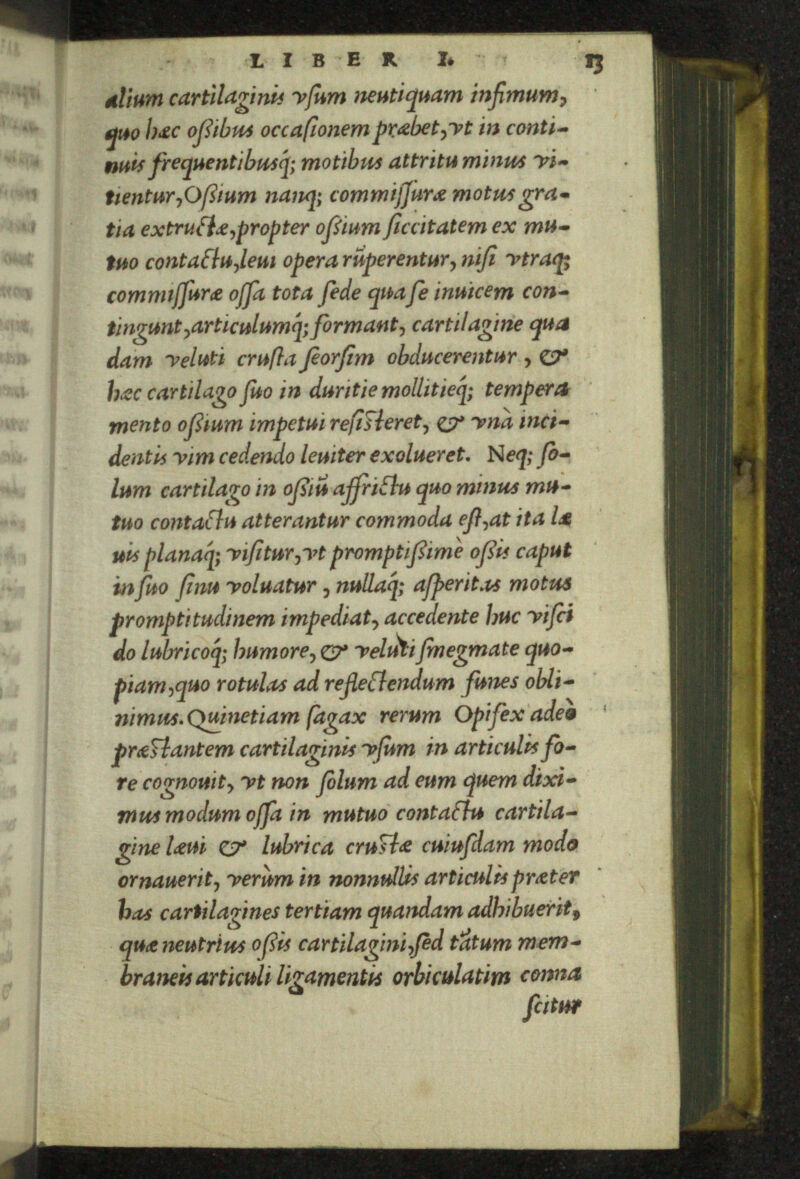 LIBER I. 13
alium cartilaginis vsum neutiquam infimum,
quo hæc oßibus occasionem præbet,vt in conti-
nuis frequentibusq; motibus attritu minus vi-
tientur,Oßium nanq; commissuræ motus gra-
tia extructæ,propter oßium siccitatem ex mu-
tuo contactu,leui opera rumperentur, nisi vtraq;
commissuræ ossa tota sede qua se inuicem con-
tingunt,articulumq; formant, cartilagine qua
dam veluti crusta seorsim obducerentur, &
hæc cartilago suo in duritie mollitieq; tempera
mento oßium impetui resisteret, & vnà inci-
dentis vim cedendo leuiter exolueret. Neq; so-
lum cartilago in oßiũ affrictu quo minus mu-
tuo contactu atterantur commoda est,at ita læ
uis planaq; visitur,vt promptißimè oßis caput
in suo sinu voluatur, nullaq; asperitas motus
promptitudinem impediat, accedente huc visci
do lubricoq; humore, & veluti smegmate quo-
piam,quo rotulas ad reflectendum funes obli-
nimus. Quinetiam sagax rerum Opifex adeò
præstantem cartilaginis vsum in articulis fo-
re cognouit, vt non solum ad eum quem dixi-
mus modum ossa in mutuo contactu cartila-
gine læui & lubrica crustæ cuiusdam modo
ornauerit, verùm in nonnullis articulis præter
has cartilagines tertiam quandam adhibuerit,
quæ neutrius oßis cartilagini,sed tãtum mem-
braneis articuli ligamentis orbiculatim conna
scitur